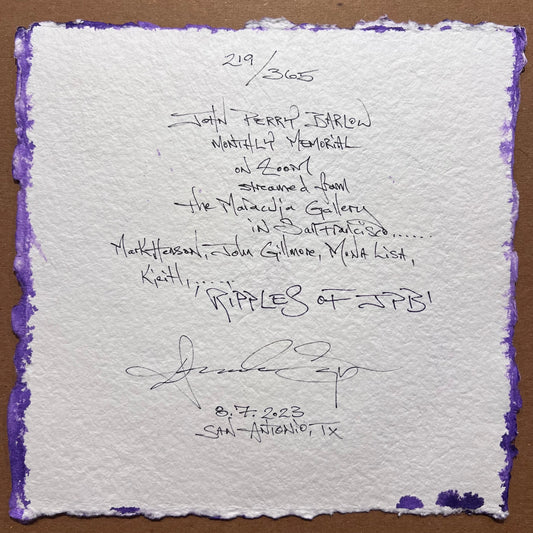 219/365
JOHN PERRY BARLOW
MONTHLY MEMORIAL
ON ZOOM
streamed from
the Gallery
in San Francisco......
Mark Henson, John Gillmore, MONA LISA,
Keith, .....
RIPPLES OF JPB!
8.7.2023
SAN ANTONIO, TX